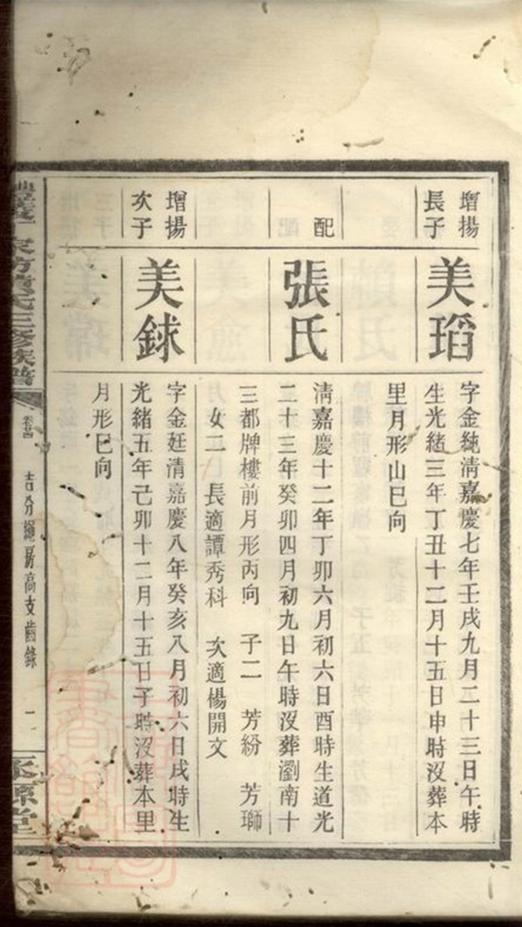 增揚
長子
美瑫
字金純清嘉慶七年壬戌九月二十三日午時
生光緒三年丁丑十二月十五日申時沒葬本
里月形山巳向
配
張氏
清嘉慶十二年丁卯六月初六日酉時生道光
二十三年癸卯四月初九日午時沒葬瀏南十
三都牌樓前月形丙向 子二 芳紛 芳獅
女二 長適譚秀科 次適楊開文
增揚
次子
美銶
字金廷清嘉慶八年癸亥八月初六日戌時生
光緒五年己卯十二月十五日子時沒葬本里
月形巳向
氏三修族譜
吉分繩房高支齒錄
一